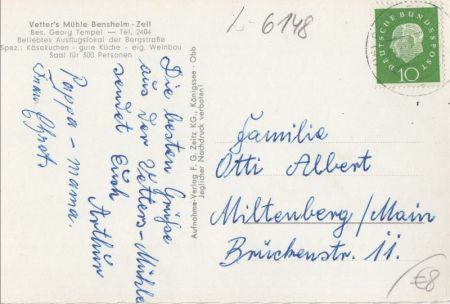 Vetter's Mühle Bensheim-Zell
Bes. Georg Tempel — Tel. 2404
Beliebtes Ausflugslokal der Bergstraße
Spez.: Käsekuchen - gute Küche - eig. Weinbau
Saal für 300 Personen
L-6148
DEUTSCHE BUNDESPOST
10
Die besten Grüße
aus der Vetters-Mühle
sendet Euch
Arthur
Pappa - Mama.
Aufnahme-Verlag F. G. Zeitz KG., Königssee-Obb
Jeglicher Nachdruck verboten!
Familie
Otti Albert
Miltenberg/Main
Brückenstr. 11.
€8